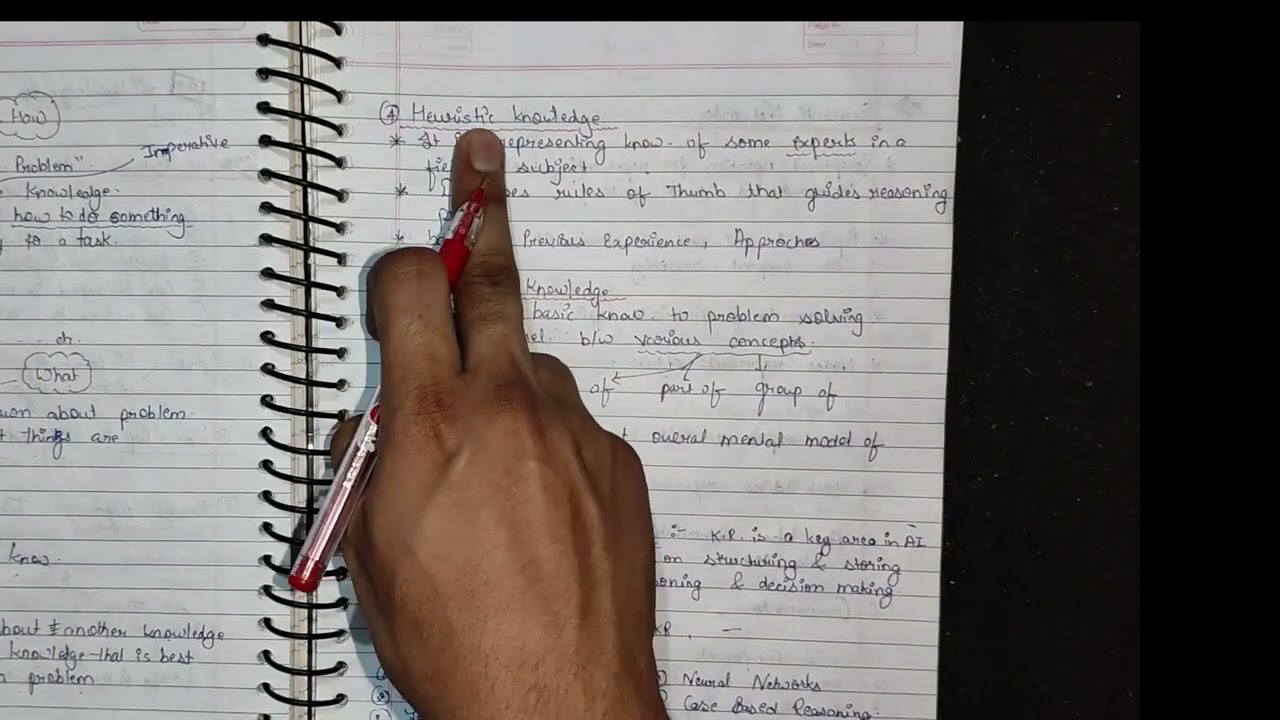 How
Imperative
Problem"
Knowledge.
how to do something
to a task.
or
What
about problem.
things are
know.
about another knowledge
knowledge that is best
problem
④ Heuristic Knowledge
* It representing know. of some experts in a
subject
* rules of Thumb that guides reasoning
* Previous Experience, Approches
Knowledge
basic know. to problem solving
b/w various concepts.
of part of group of
overal mental model of
:- K.R. is a key area in AI
on structuring & storing
& decision making.
KR. —
Neural Networks
Case Based Reasoning.